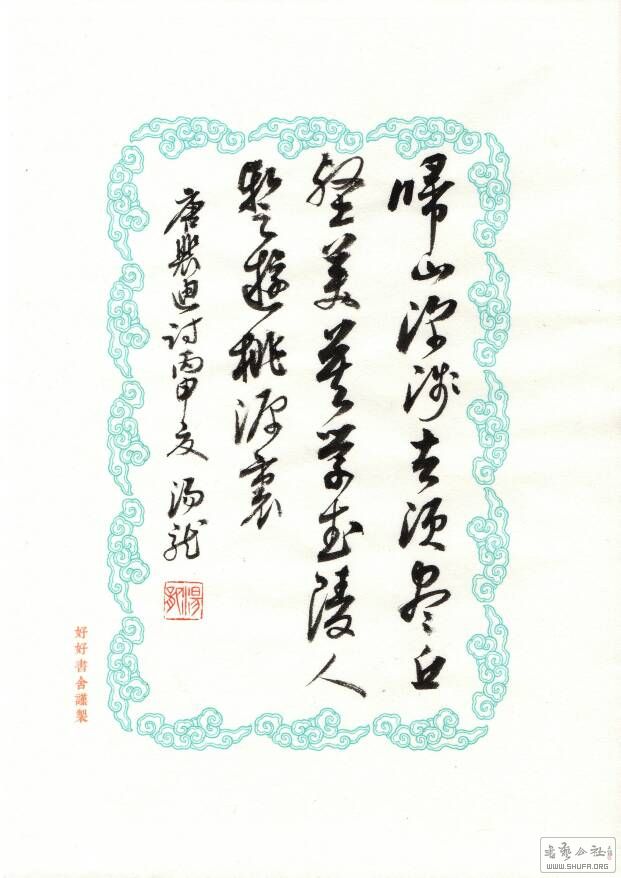 歸山深淺去須盡丘
壑美莫學武陵人
暫遊桃源裏
唐裴迪詩丙申夏 湯龍
湯龍
好好書舍謹製
书艺公社
WWW.SHUFA.ORG